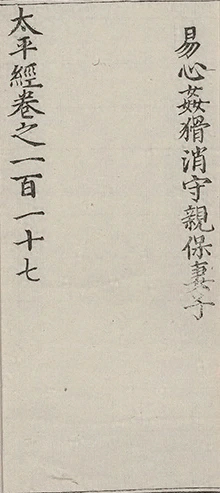 易心姦猾消守親保妻子
太平經卷之一百一十七